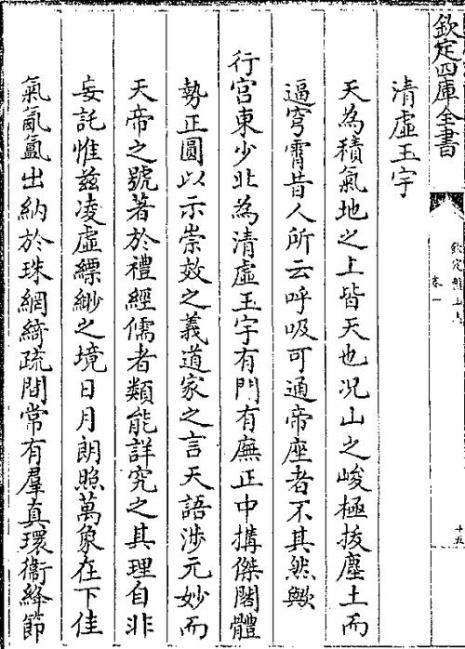 欽定四庫全書
欽定盤山志
卷一
十五
清虛玉宇
天為積氣地之上皆天也况山之峻極拔塵土而
逼穹霄昔人所云呼吸可通帝座者不其然歟
行宮東少北為清虛玉宇有門有廡正中搆傑閣體
勢正圓以示崇效之義道家之言天語涉元妙而
天帝之號著於禮經儒者類能詳究之其理自非
妄託惟兹凌虛縹緲之境日月朗照萬象在下佳
氣氤氳出納於珠網綺疏間常有羣真環衞絳節